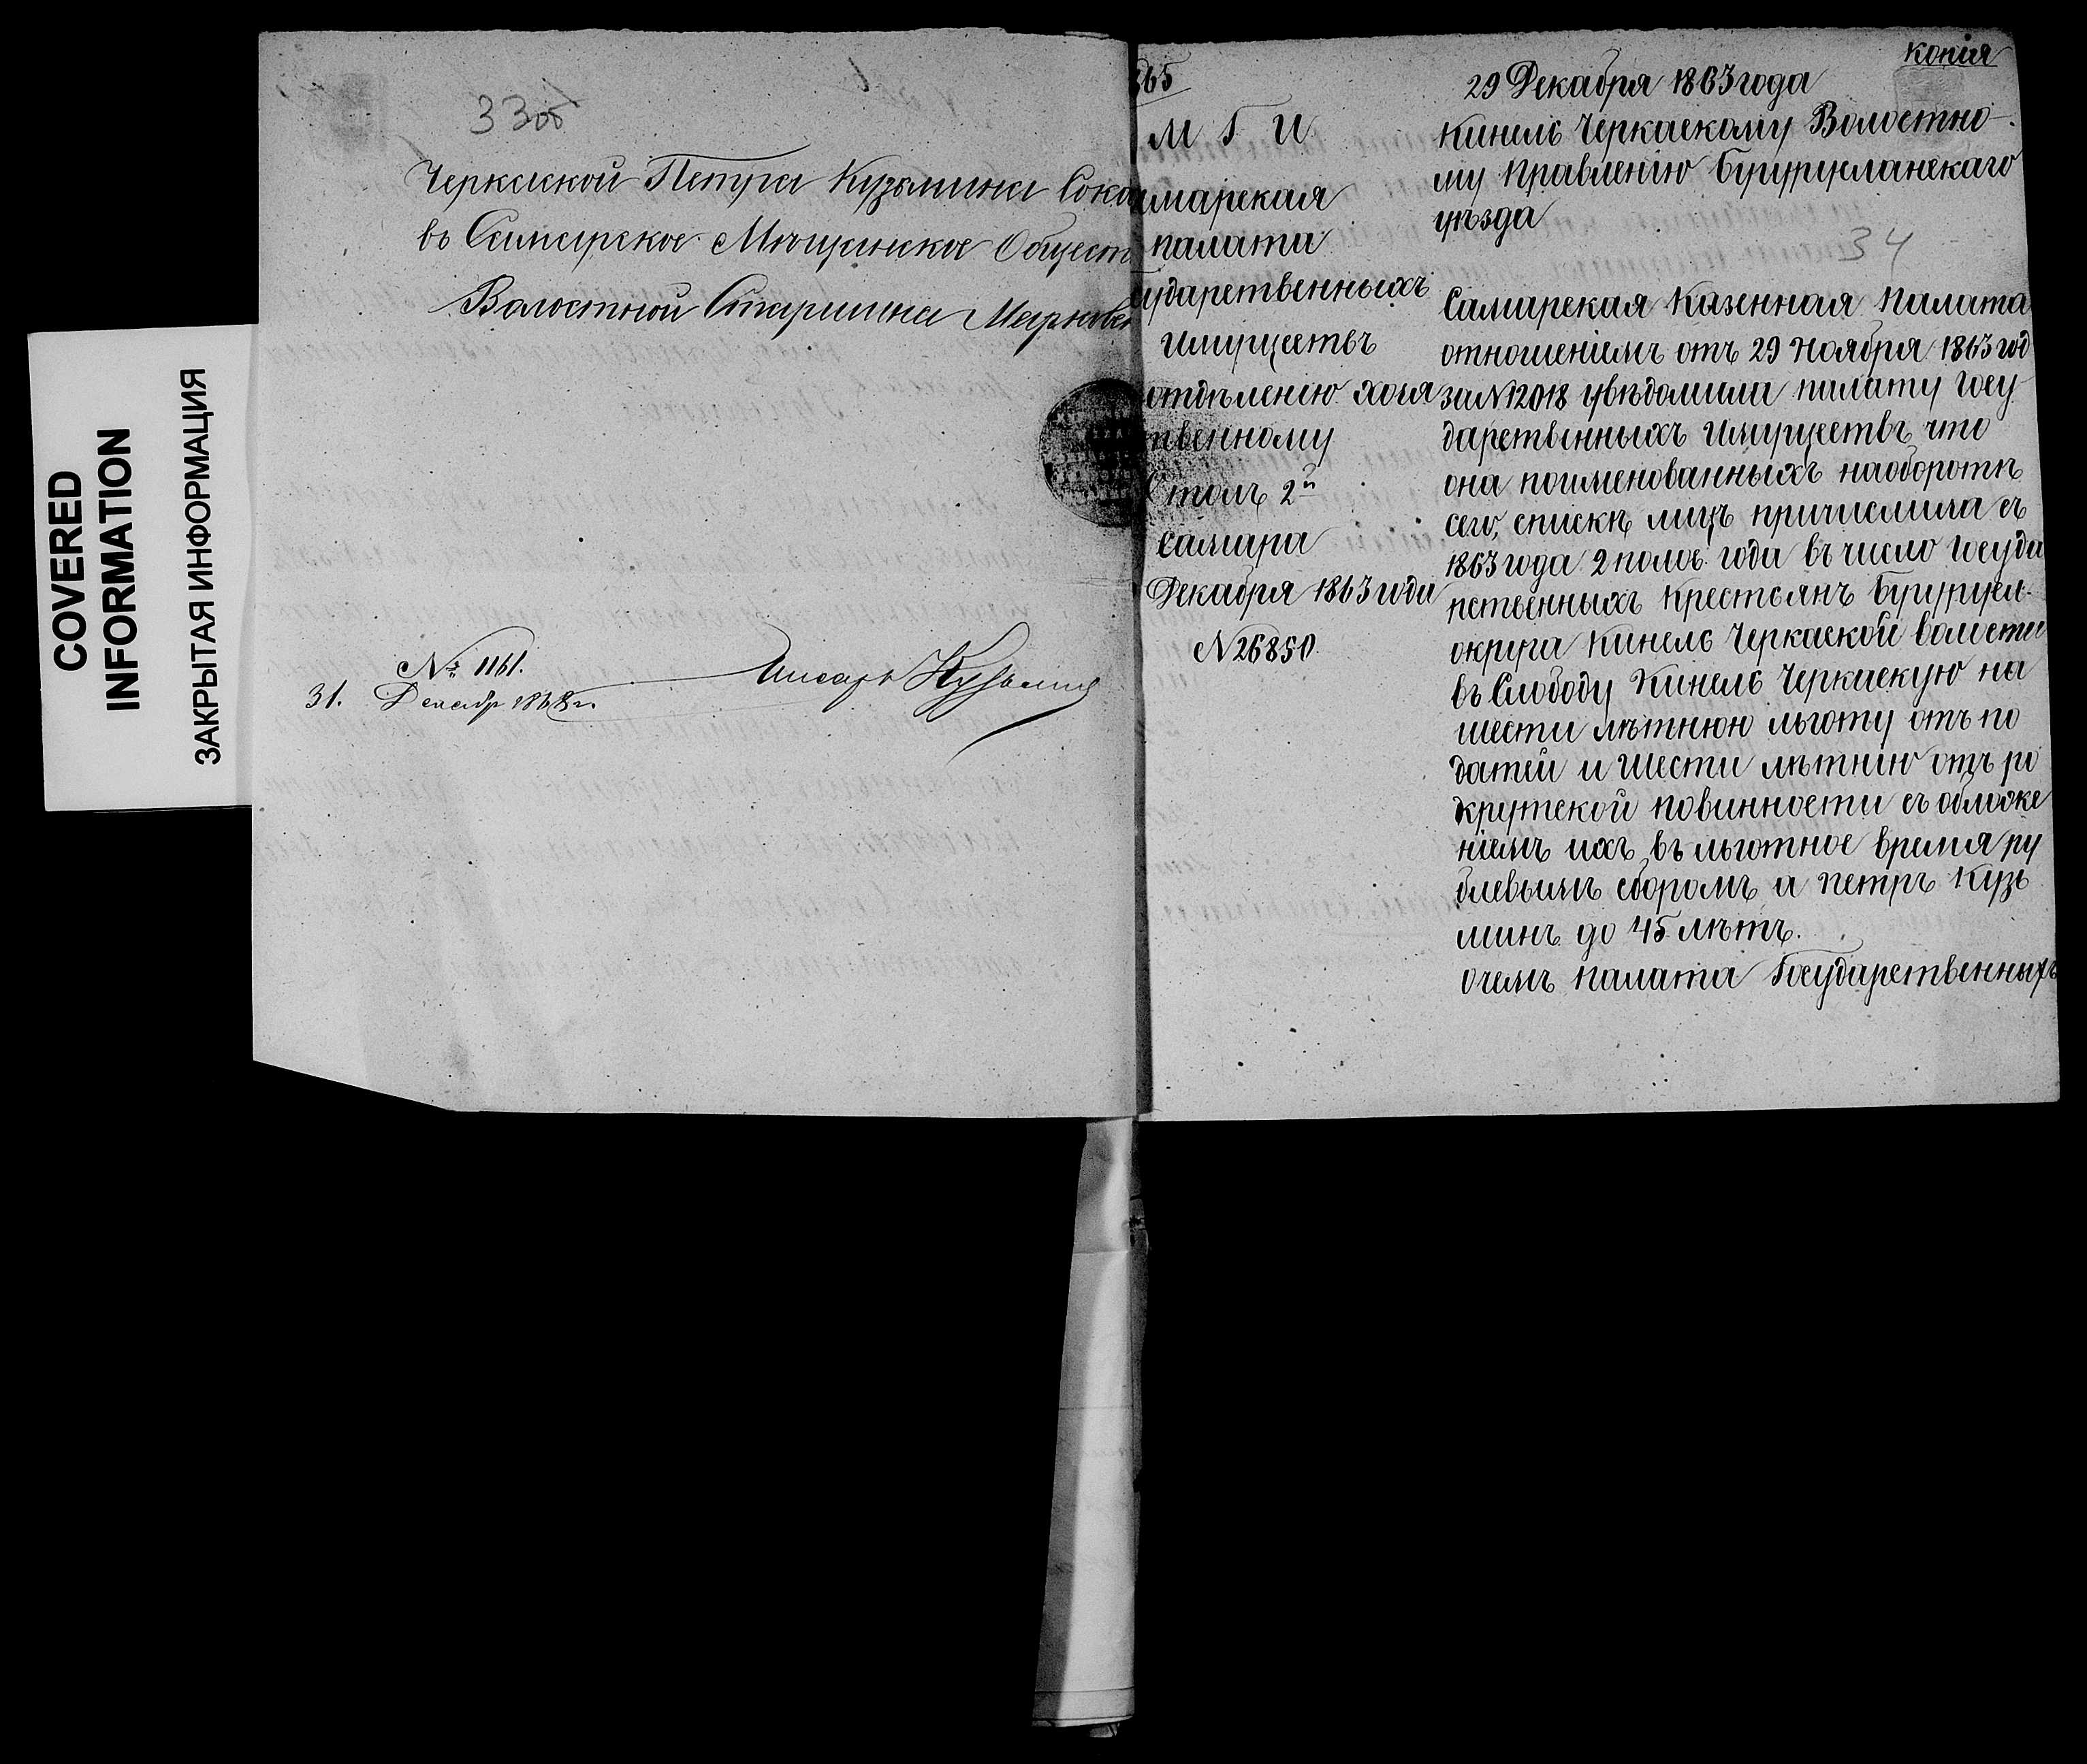 COVERED
INFORMATION
ЗАКРЫТАЯ ИНФОРМАЦИЯ
33об
Черкаской Петра Кузьмина Соко
въ Самарское Мещанское Общест
Волостной Старшина Марков
№ 1161.
31. Декабр 1868 г.
Писарь Кузьмин
65
М Г И
марская
палата
ударственныхъ
имуществъ
отделенiю хозя
твенному
Столъ 2й
Самара
Декабря 1863 года
N 26850
Копiя
29 Декабря 1863 года
Кинель Черкаскому Волостно
му Правленiю Бугурусланскаго
уѣзда
34
Самарская Казенная Палата
отношенiемъ отъ 29 Ноября 1863 год
за N 12018 увѣдомила палату Госу
дарственныхъ Имуществъ что
она поименованныхъ наоборотѣ
сего, спискѣ лицъ причислила съ
1863 года 2 полов. года въ число Госуда
рственныхъ Крестьянъ Бугурусл.
округа Кинель Черкаской волости
въ Слободу Кинель Черкаскую на
шести лѣтнюю льготу отъ по
датей и шести лѣтнiю отъ ре
крутской повинности съ обложе
нiемъ ихъ въ льготное время ру
блевымъ сборомъ а Петръ Кузь
минъ до 45 лѣтъ.
очемъ Палата Государственныхъ